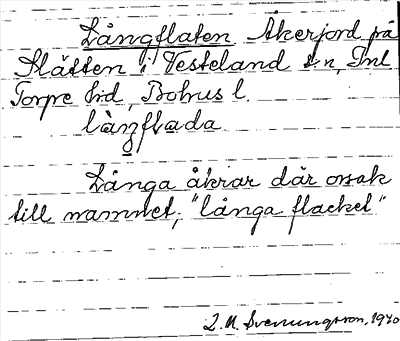 Långflaten Åkerjord på
Slätten i Testeland s:n, Inl
Torpe hd, Bohus l.
làŋflada
Långa åkrar där orsak
till namnet, "långa flacket"
Svenungsson, 1940